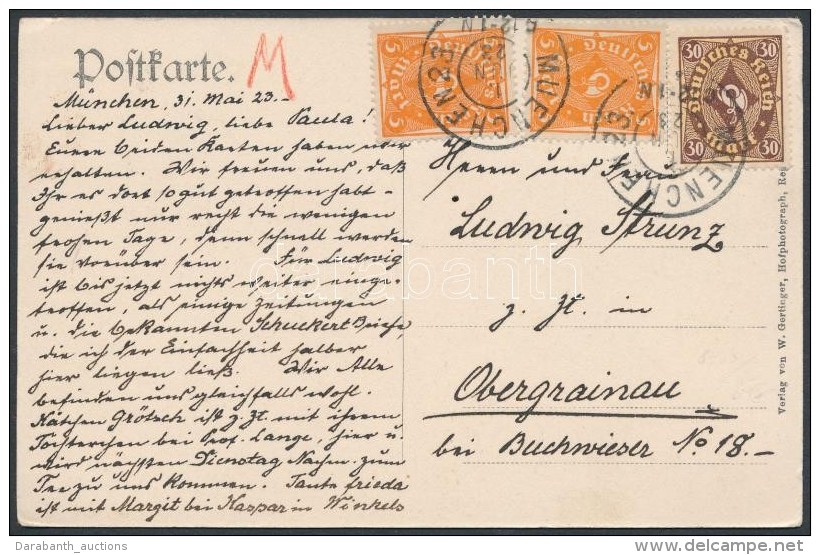 Postkarte. M
München, 31. Mai 23.-
Lieber Ludwig, liebe Paula!
Eure beiden Karten haben wir
erhalten. Wir freuen uns, daß
Ihr es dort so gut getroffen habt -
genießt nur recht die wenigen
frohen Tage, denn schnell werden
sie vorüber sein. Für Ludwig
ist bis jetzt nichts weiter einge-
troffen, als einige Zeitungen
u. die bekannten Schuckert Briefe,
die ich der Einfachheit halber
hier liegen ließ. Wir Alle
befinden uns gleichfalls wohl.
Kätchen Grötsch ist z. Zt. mit ihrem
Töchterchen bei Prof. Lange, hier u.
wird nächsten Dienstag Nachm. zum
Tee zu uns kommen. Tante Frieda
ist mit Margit bei Kaspar in Winkels
5 Deutsches Reich 5
5 Deutsches Reich 5
30 Deutsches Reich 30
30 Mark 30
MUENCHEN 23
MUENCHEN
Herrn und Frau
Ludwig Strunz
z. Zt. in
Obergrainau
bei Buchwieser No 18.-
Verlag von W. Gerlieger, Hofphotograph,
darabanth
Darabanth_auctions
www.delcampe.net